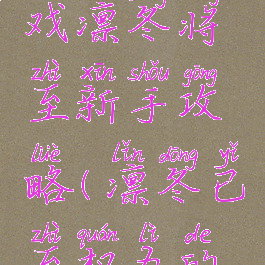 戏凛冬将
zhì xīn shǒu gōng
至新手攻
lüè lǐn dōng yǐ
略(凛冬已
zhì quán lì de
至权力的